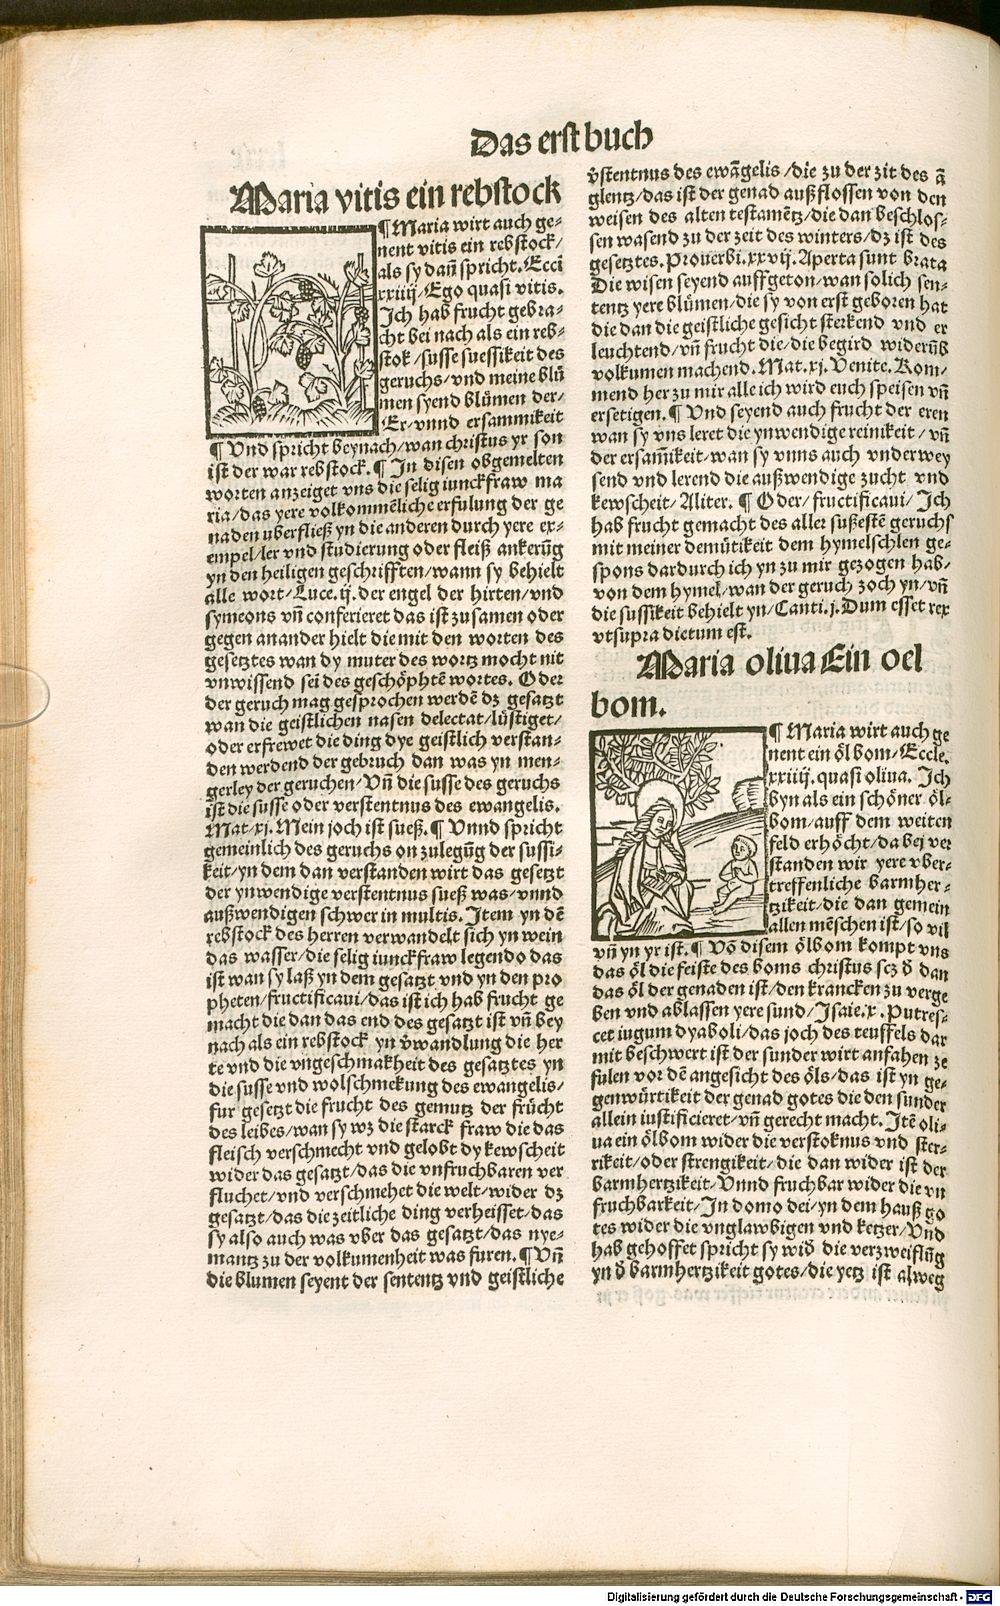 Das erst buch
Maria vitis ein rebstock
¶ Maria wirt auch ge⸗
nent vitis ein rebstock/
als sy dañ spricht. Ecci
xxiiij/ Ego quasi vitis.
Ich hab frucht gebra⸗
cht bei nach als ein reb⸗
stok/susse suessikeit des
geruchs/vnd meine blů
men syend blůmen der⸗
Er/vnnd ersammikeit
¶ Vnd spricht beynach/wan christus yr son
ist der war rebstock. ¶ In disen obgemelten
worten anzeiget vns die selig iunckfraw ma
ria/das yere volkommēliche erfulung der ge
naden uberfließ yn die anderen durch yere ex⸗
empel/ler vnd studierung oder fleiß ankerūg
yn den heiligen geschrifften/wann sy behielt
alle wort/Luce.ij. der engel der hirten/vnd
symeons vñ conferieret das ist zusamen oder
gegen anander hielt die mit den worten des
gesetztes wan dy muter des wortz mocht nit
vnwissend sei des geschöphtē wortes. Oder
der geruch mag gesprochen werdē dz gesatzt
wan die geistlichen nasen delectat/lüstiget/
oder erfrewet die ding dye geistlich verstan⸗
den werdend der gebruch dan was yn men⸗
gerley der geruchen/Vñ die susse des geruchs
ist die susse oder verstentnus des ewangelis.
Mat.xj. Mein joch ist sueß. ¶ Vnnd spricht
gemeinlich des geruchs on zulegūg der sussi⸗
keit/yn dem dan verstanden wirt das gesetzt
der ynwendige verstentnus sueß was/vnnd
außwendigen schwer in multis. Item yn dē
rebstock des herren verwandelt sich yn wein
das wasser/die selig iunckfraw legendo das
ist wan sy laß yn dem gesatzt vnd yn den pro
pheten/fructificaui/das ist ich hab frucht ge
macht die dan das end des gesatzt ist vñ bey
nach als ein rebstock yn v̄wandlung die her
te vnd die vngeschmakheit des gesatztes yn
die susse vnd wolschmekung des ewangelis/
fur gesetzt die frucht des gemutz der frücht
des leibes/wan sy wz die starck fraw die das
fleisch verschmecht vnd gelobt dy kewscheit
wider das gesatzt/das die vnfruchbaren ver
fluchet/vnd verschmehet die welt/wider dz
gesatzt/das die zeitliche ding verheisset/das
sy also auch was vber das gesatzt/das nye⸗
mantz zu der volkumenheit was furen. ¶ Vñ
die blumen seyent der sententz vnd geistliche
v̄stentnus des ewāgelis/die zu der zit des ā
glentz/das ist der genad außflossen von den
weisen des alten testamētz/die dan beschlos⸗
sen wasend zu der zeit des winters/dz ist des
gesetztes. Prouerbi.xxvij. Aperta sunt brata
Die wisen seyend auffgeton/wan solich sen⸗
tentz yere blůmen/die sy von erst geboren hat
die dan die geistliche gesicht sterkend vnd er
leuchtend/vñ frucht die/die begird widerūb
volkumen machend. Mat.xj. Venite. Kom⸗
mend her zu mir alle ich wird euch speisen vñ
ersetigen. ¶ Vnd seyend auch frucht der eren
wan sy vns leret die ynwendige reinikeit/vñ
der ersam̄ikeit/wan sy vnns auch vnderwey
send vnd lerend die außwendige zucht vnd
kewscheit/Aliter. ¶ Oder/fructificaui/Ich
hab frucht gemacht des aller sußestē geruchs
mit meiner demütikeit dem hymelschlen ge⸗
spons dardurch ich yn zu mir gezogen hab⸗
von dem hymel/wan der geruch zoch yn/vñ
die sussikeit behielt yn/Canti.j. Dum esset rex
vtsupra dictum est.
Maria oliua Ein oel
bom.
¶ Maria wirt auch ge
nent ein öl bom/Eccle.
xxiiij. quasi oliua. Ich
byn als ein schöner öl⸗
bom/auff dem weiten
feld erhöcht/da bei ver
standen wir yere vber⸗
treffenliche barmher⸗
tzikeit/die dan gemein
allen mēschen ist/so vil
vñ yn yr ist. ¶ Vō disem ölbom kompt vns
das öl die feiste des boms christus scz d̄ dan
das öl der genaden ist/den krancken zu verge
ben vnd ablassen yere sund/Isaie.x. Putres⸗
cet iugum dyaboli/das joch des teuffels dar
mit beschwert ist der sunder wirt anfahen ze
fulen vor dē angesicht des öls/das ist yn ge⸗
genwürtikeit der genad gotes die den sunder
allein iustificieret/vñ gerecht macht. Itē oli⸗
ua ein ölbom wider die verstoknus vnd ster⸗
rikeit/oder strengikeit/die dan wider ist der
barmhertzikeit/Vnnd fruchbar wider die vn
fruchbarkeit/In domo dei/yn dem hauß go
tes wider die vnglawbigen vnd ketzer/Vnd
hab gehoffet spricht sy wid̄ die verzweiflūg
yn d̄ barmhertzikeit gotes/die yetz ist alweg
Digitalisierung gefördert durch die Deutsche Forschungsgemeinschaft - DFG